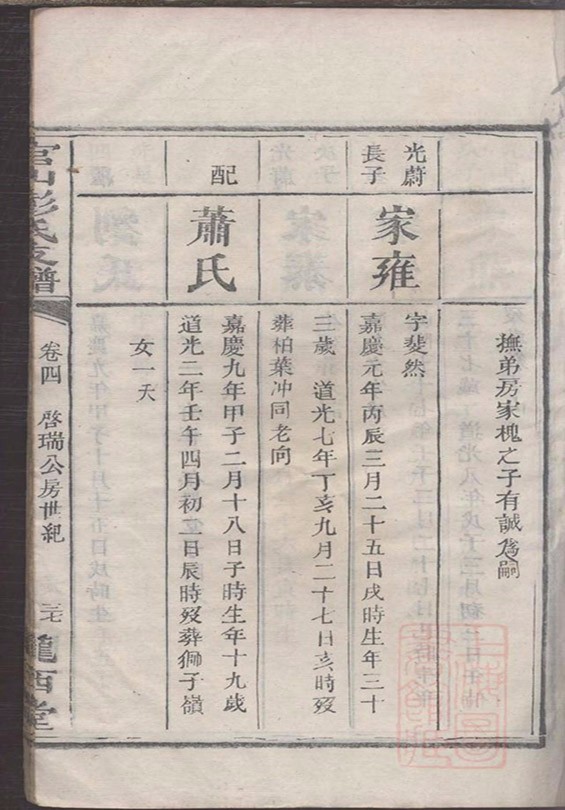 撫弟房家槐之子有誠為嗣
光蔚
長子
家雍
字斐然
嘉慶元年丙辰三月二十五日戌時生年三十
三歲　道光七年丁亥九月二十七日亥時歿
葬柏葉冲同老向
配
蕭氏
嘉慶九年甲子二月十八日子時生年十九歲
道光二年壬午四月初二日辰時歿葬獅子嶺
女一夭
彭氏支譜
卷四
啓瑞公房世紀
隴西堂